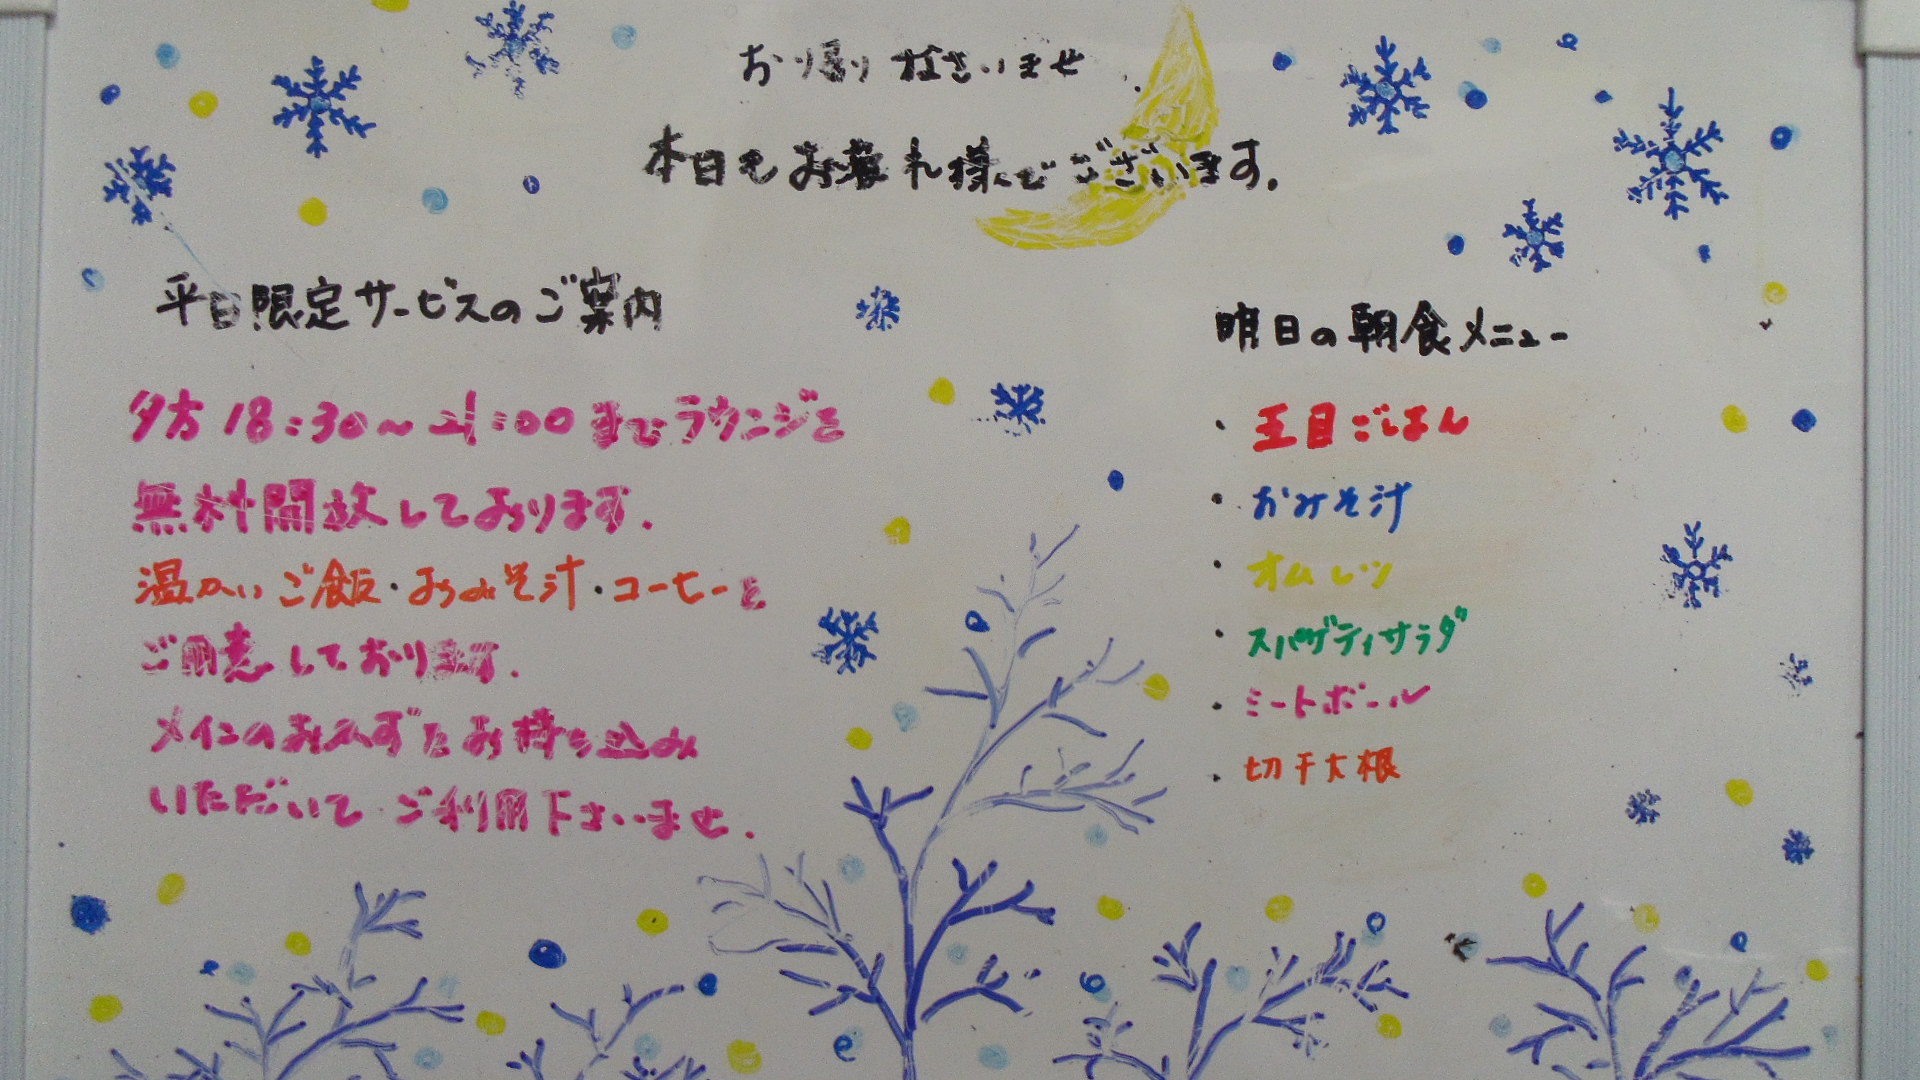 お帰りなさいませ
本日もお疲れ様でございます。
平日限定サービスのご案内
夕方18:30〜21:00までラウンジを
無料開放しております。
温かいご飯・おみそ汁・コーヒーを
ご用意しております。
メインのおかずをお持ち込み
いただいてご利用下さいませ。
明日の朝食メニュー
・五目ごはん
・おみそ汁
・オムレツ
・スパゲティサラダ
・ミートボール
・切干大根